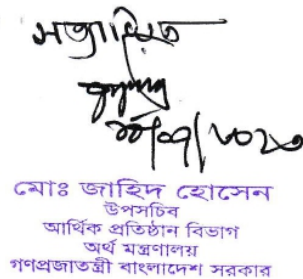 সত্যায়িত
মোঃ জাহিদ হোসেন
উপসচিব
আর্থিক প্রতিষ্ঠান বিভাগ
অর্থ মন্ত্রণালয়
গণপ্রজাতন্ত্রী বাংলাদেশ সরকার